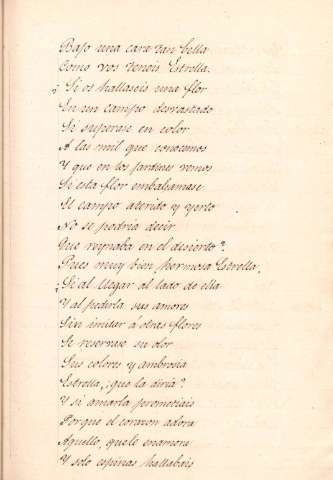 Bajo una cara tan bella
Como vos teneis Estrella.
¿Si os hallaseis una flor
En un campo devastado
Si superase en color
A las mil que conocemos
Y que en los jardines vemos
Si esta flor embalsamase
El campo aterido y yerto
No se podria decir
Que reynaba en el desierto?
Pues muy bien hermosa Estrella,
¿Si al llegar al lado de ella
Y al pedirla sus amores
Sin imitar á otras flores
Se reservase su olor
Sus colores y ambrosia
Estrella, ¿que la diria?
Y si amarla prometiais
Porque el corazon adora
Aquello, que le enamora
Y solo espinas hallabais